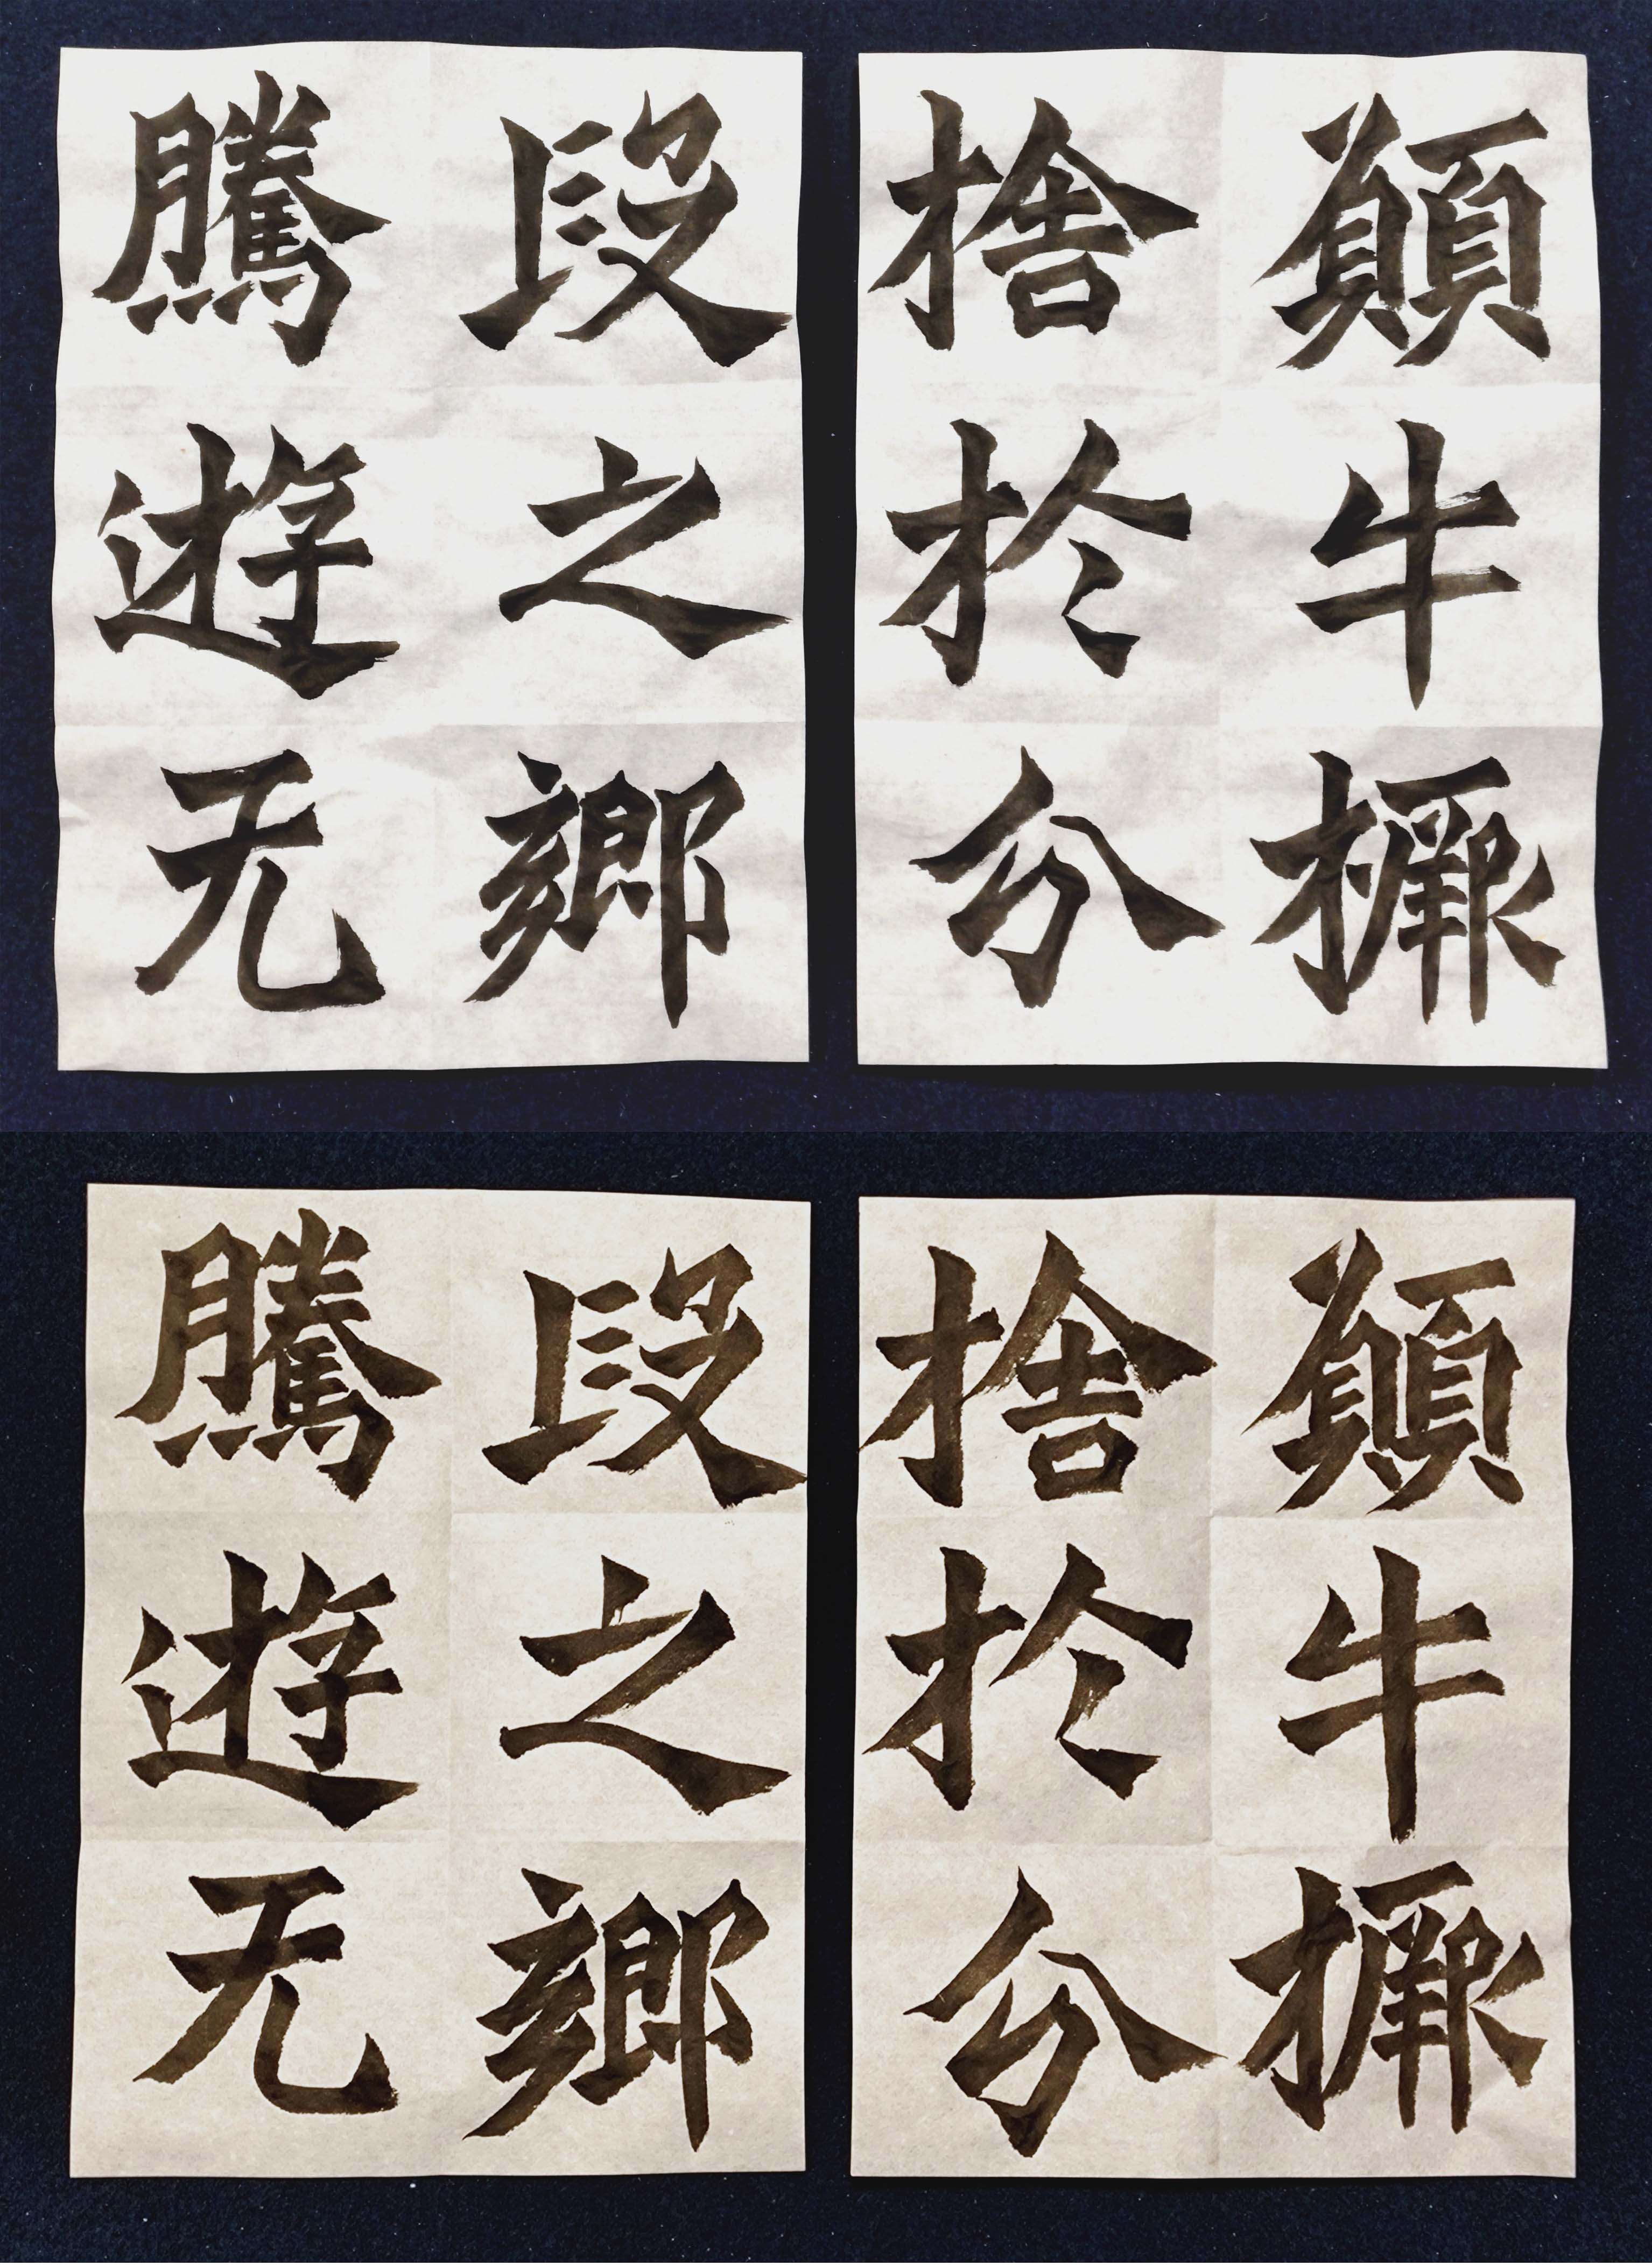 願牛橛
捨於分
段之鄉
騰遊无
願牛橛
捨於分
段之鄉
騰遊无